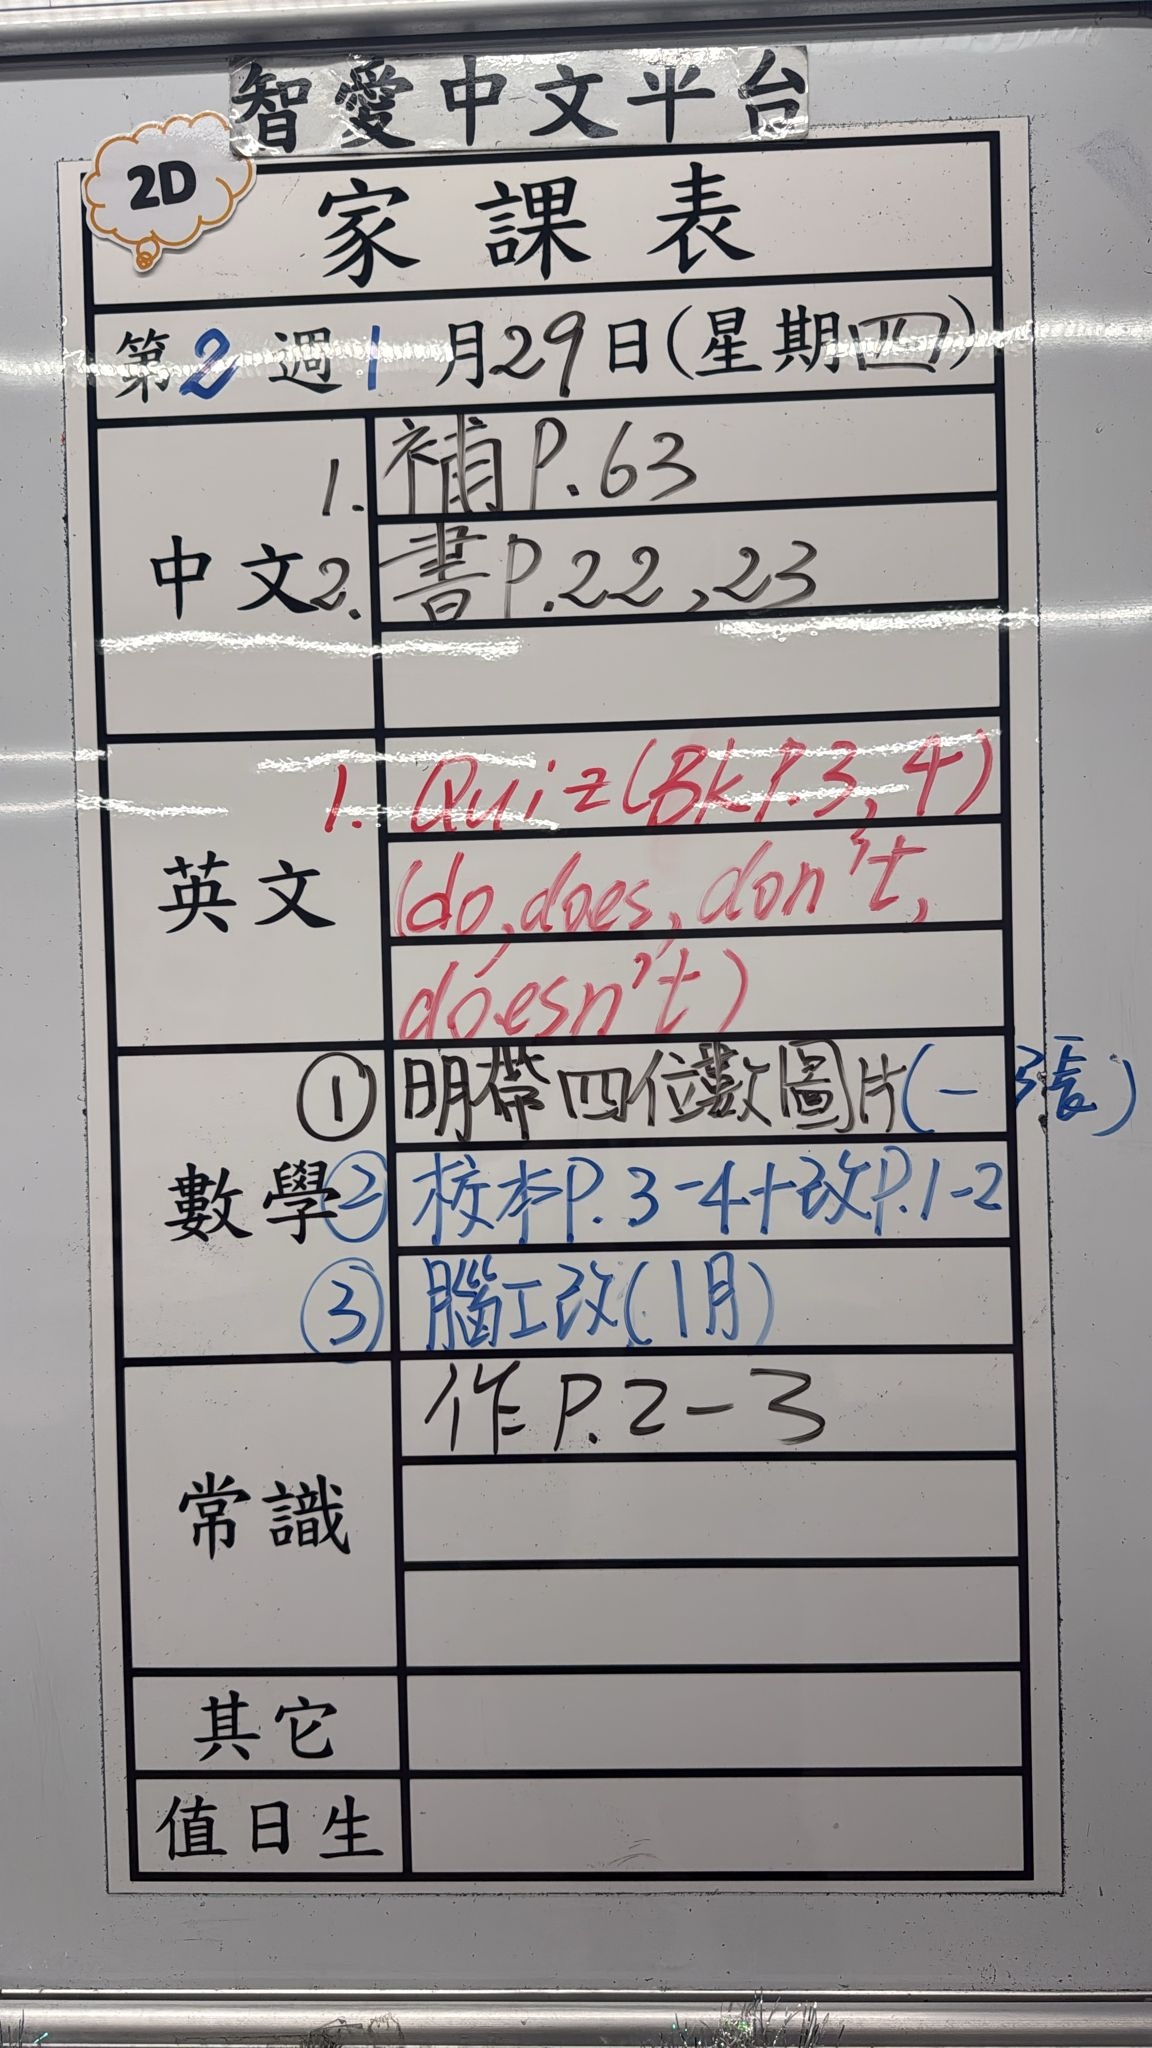 智愛中文平台
2D
家課表
第2週1月29日(星期四)
中文
1. 補P.63
2. 書P.22,23
英文
1. Quiz(Bk P.3, 4)
(do, does, don't,
doesn't)
數學
① 明帶四位數圖片(一張)
② 校本P.3-4+改P.1-2
③ 腦工改(1月)
常識
作P.2-3
其它
值日生